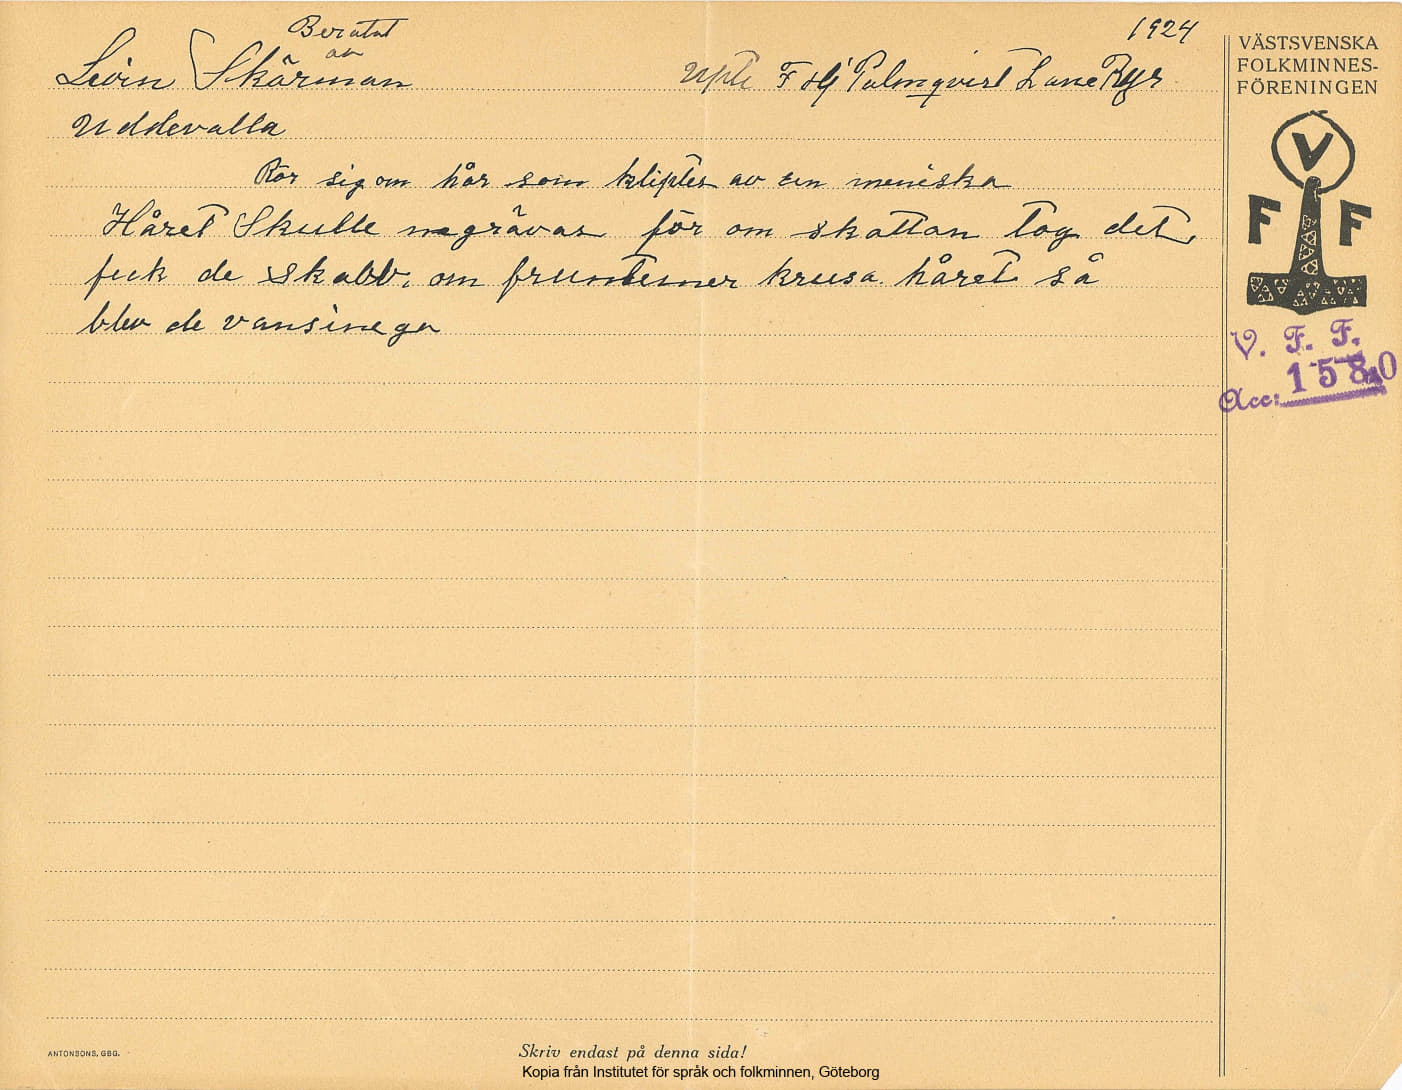 Berätat
av
1924
Levin Skärman
Uppte F Hj Palmqvist Lane Rys
Uddevalla
Rör sig om hår som kliptes av en meniska
Håret Skulle negrävas för om skattan tog det,
feck de skabb, om fruntemer krusa håret så
blev de vansinega
VÄSTSVENSKA
FOLKMINNES-
FÖRENINGEN
V
F F
V. F. F.
Acc: 1580
ANTONSONS, GBG.
Skriv endast på denna sida!
Kopia från Institutet för språk och folkminnen, Göteborg